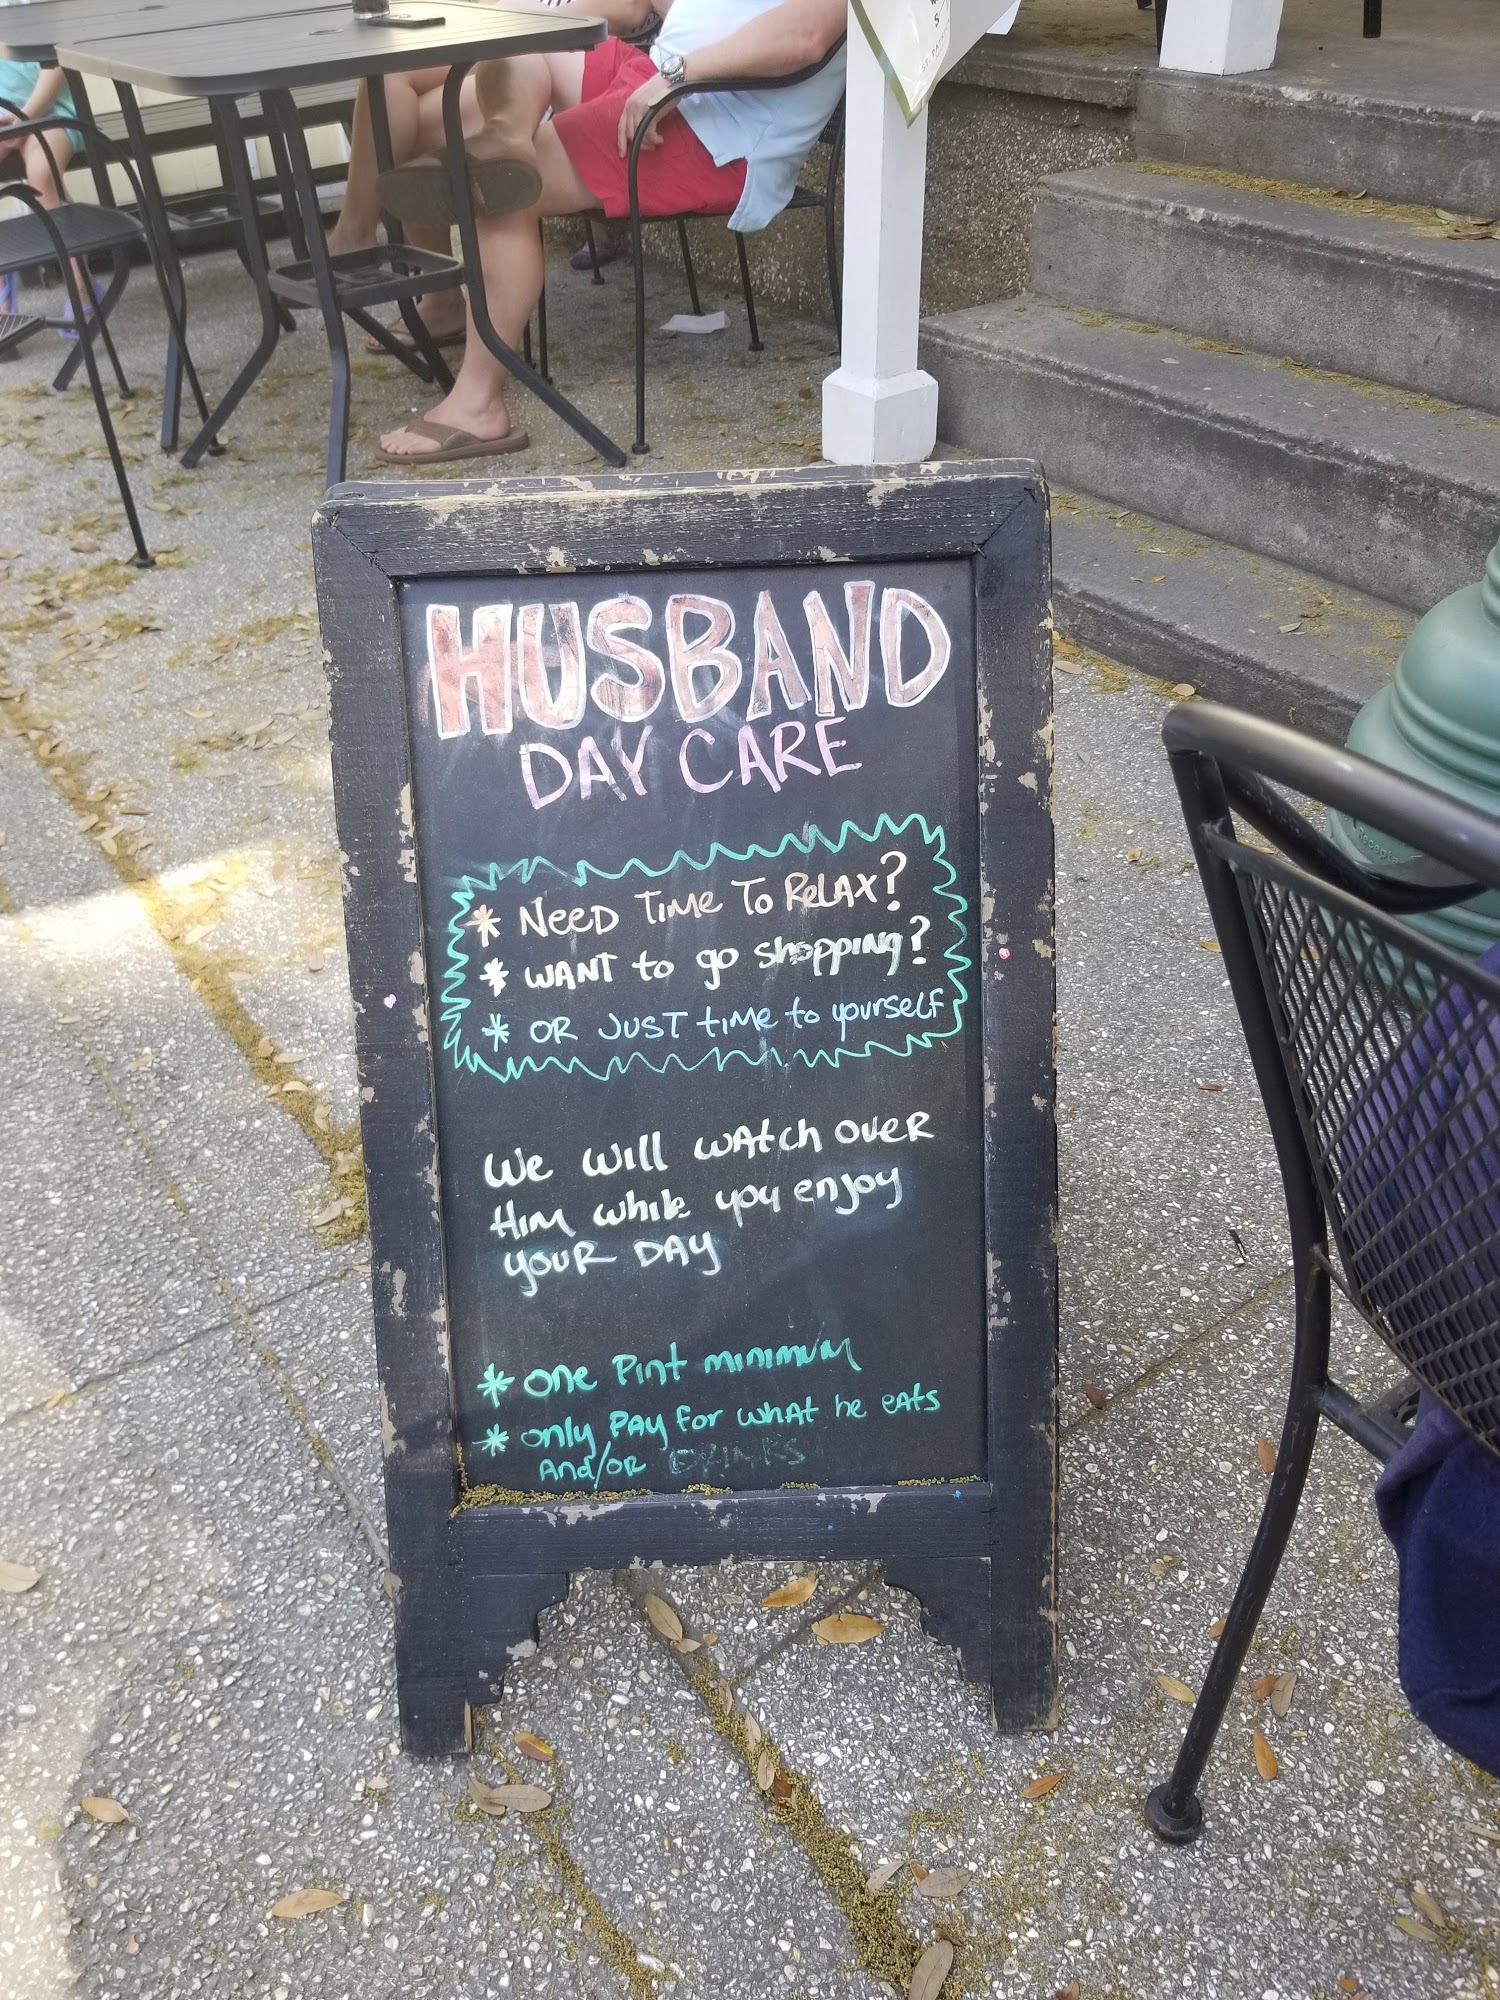 HUSBAND
DAY CARE
* NeeD Time To ReLAX?
* WANT to go shopping?
* OR JUST time to yourself
We will watch over
Him while you enjoy
YOUR DAY
* one Pint minimum
* only PAY For what he eats
And/OR DRINKS